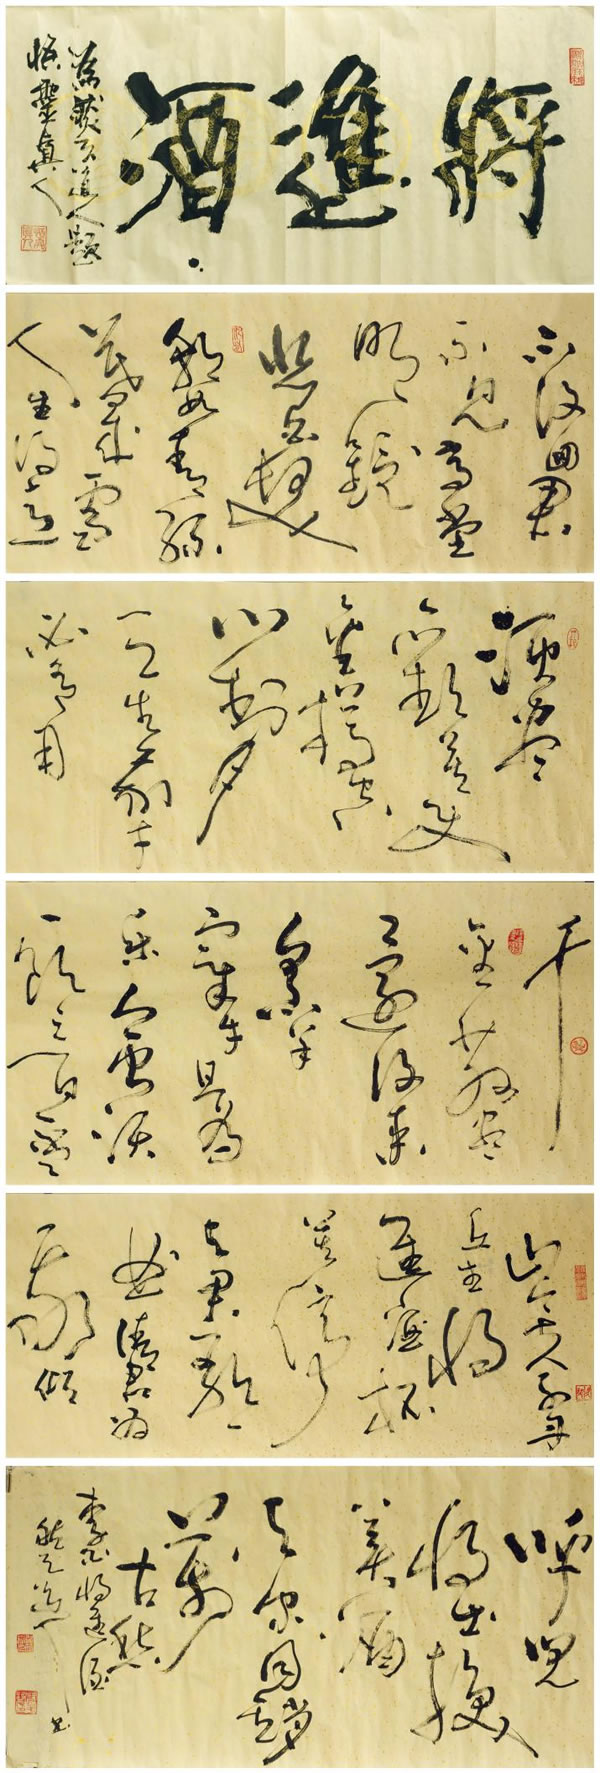 將進酒
不復回君
不見高堂
明鏡
悲白髮
朝如青絲
暮成雪
人生得意
須盡
歡莫使
金樽空
對月
天生我才
必有用
千
金散盡
還復來
烹羊
宰牛且為
樂會須
一飲三百杯
岑夫子丹
丘生將
進酒杯
莫停
與君歌一
曲請君為
我傾
呼兒
將出換
美酒
與爾同銷
萬
古愁
李白將進酒